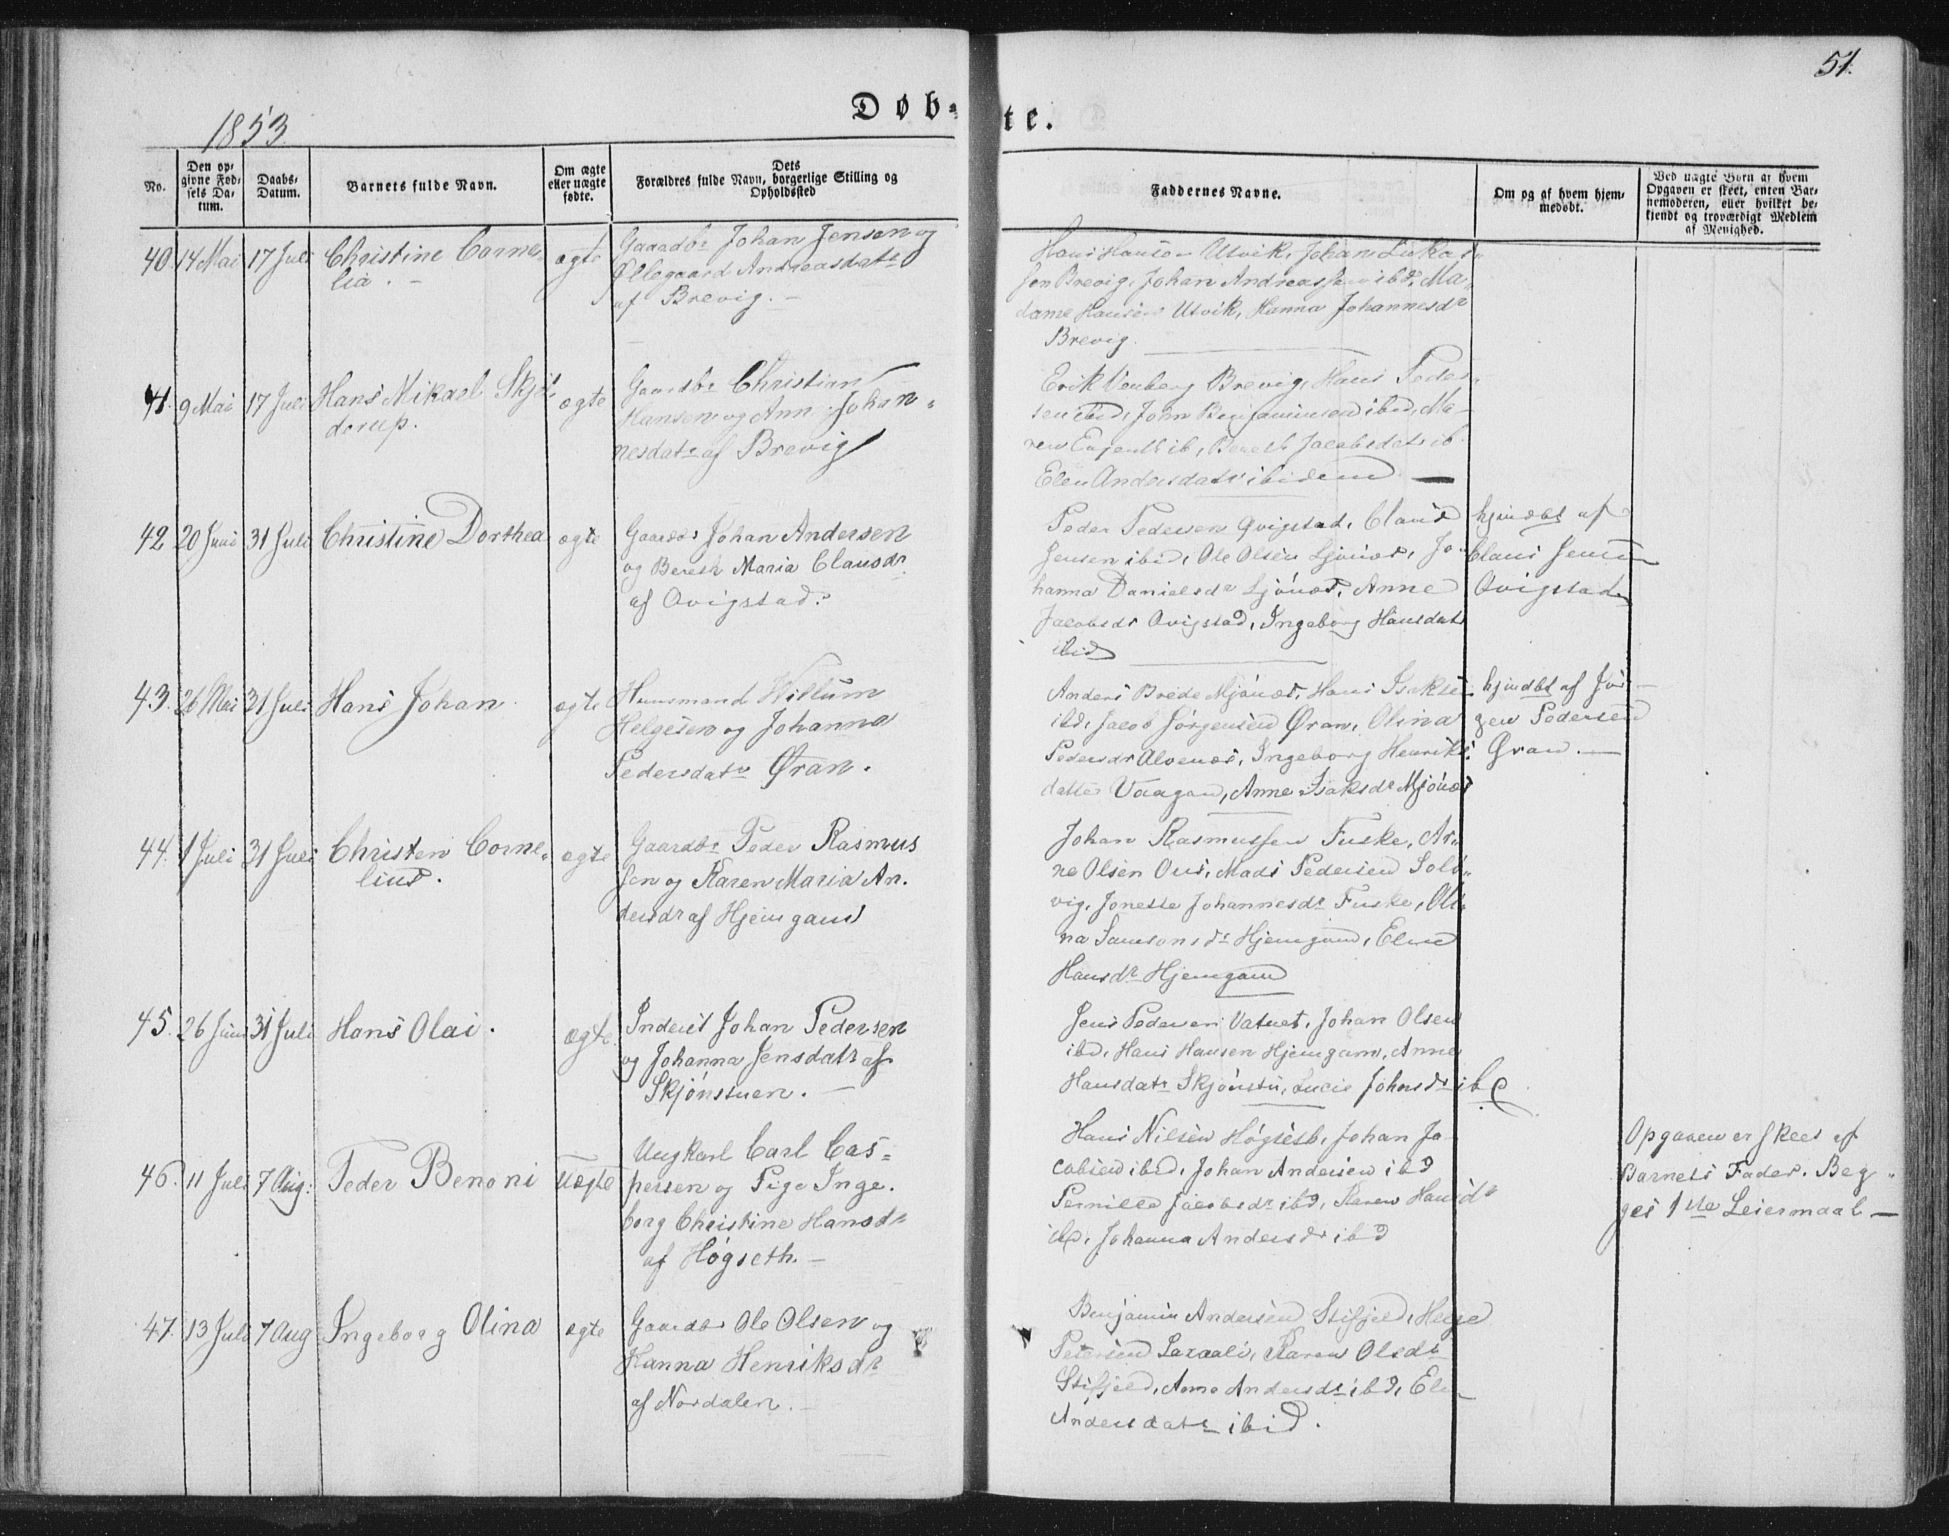 51.
1853.
Døb-
te.
No.
Den op-
givne Fød-
sels Da-
tum.
Daabs-
Datum.
Barnets fulde Navn.
Om ægte
eller uægte
fødte.
Dets
Forældres fulde Navn, borgerlige Stilling og
Opholdssted
Faddernes Navne.
Om og af hvem hjem-
medøbt.
Ved uægte Børn af hvem
Opgaven er skeet, enten Bar-
nemoderen, eller hvilket be-
kjendt og troværdigt Medlem
af Menighed.
40. 14 Mai 17 Juli Christine Corne-
lia.
ægte
Gaardbr Johan Jensen og
Ollegaard Andreasdatr
af Brevig.
Hans Hansen Utvik, Johan Lukas-
sen Brevig, Johan Andreassen ibd, Ma-
dame Hansen Utvik, Hanna Johannesdr
Brevig.
41. 9 Mai 17 Juli Hans Mikael Skjel-
derup.
ægte
Gaardbr Christian
Hansen og Ann Johan-
nesdatr af Brevig
Erik Brevig, Hans Peder-
sen ibid, John Benjaminsen ibid, Ma-
ren ib, Bereth Jacobsdatr ib
Elen Andersdatr ibidem
42. 20 Juni 31 Juli Christine Dorthea
ægte
Gaardbr Johan Andersen
og Bereth Maria Clausdr
af Qvigstad.
Peder Pedersen Qvigstad, Claus
Jensen ibid, Ole Olsen Ljönæs, Jo-
hanna Danielsdr Ljönæs, Anne
Jacobsdr Qvigstad, Ingeborg Hansdatr
ibid
hjmdbt af
Claus Jensen
Qvigstad
43. 26 Mai 31 Juli Hans Johan
ægte
Huusmand Willum
Helgesen og Johanna
Pedersdatr Øran.
Anders Brede Mjönæs, Hans Isaksen
ibd, Jacob Jørgensen Øran, Olina
Pedersdr Alvenæs, Ingeborg Henriks-
datter Vaagan, Anne Isaksdr Mjönæs
hjmdbt af Jör-
gen Pedersen
Øran.
44. 1 Juli 31 Juli Christen Corne-
lius.
ægte
Gaardbr Peder Rasmus
sen og Karen Maria An-
dersdr af Hjemgam
Johan Rasmussen Fuske, Ar-
ne Olsen Ous, Mads Pedersen Solø-
vig, Jonette Johannesdr Fuske, Oli-
na Samsonsdr Hjemgam, Elen
Hansdr Hjemgam
45. 26 Juni 31 Juli Hans Olai.
ægte
Inderst Johan Pedersen
og Johanna Jensdatr af
Skjönstuen.
Jens Pedersen Vatnet, Johan Olsen
ibd, Hans Hansen Hjemgam, Anne
Hansdatr Skjönstu, Lucie Johnsdr ibd
46. 11 Juli 7 Aug: Peder Benoni
Uægte
Ungkarl Carl Cas-
persen og Pige Inge-
borg Christine Hansdr
af Högseth.
Hans Nilsen Högseth, Johan Ja-
cobsen ibid, Johan Andersen ibd
Pernilla Jacobsdr ibd, Karen Hansdr
ibd, Johanna Andersdr ibd
Opgaven er skeet af
Barnets Fader. Beg-
ges 1ste Leiermaal
47. 13 Juli 7 Aug Ingeborg Olina
ægte
Gaardbr Ole Olsen og
Hanna Henriksdr
af Nordalen.
Benjamin Andersen Stifjeld, Helge
Petersen Laxaali, Karen Olsdr
Stifjeld, Anne Andersdr ibd, Elen
Andersdatr ibid.